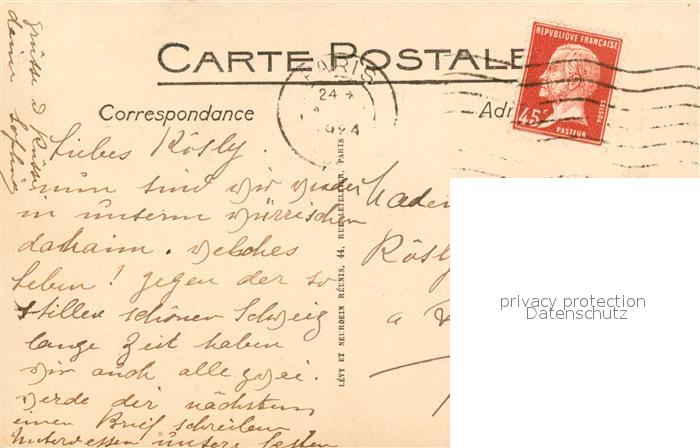 CARTE POSTALE
REPUBLIQUE FRANÇAISE
45c
POSTES
PASTEUR
PARIS
24
1924
Correspondance
Adr
Liebes Rösly.
nun sind wir wieder
in unserm
dahaim. Welches
Leben! gegen der so
stillen schönen Schweiz
lange Zeit haben
wir auch alle zwei.
werde dir nächstens
einen Brief schreiben
Unterdessen unsere besten
Grüsse &
deine
LÉVY ET NEURDEIN RÉUNIS, 44, RUE LETELLIER, PARIS
Rösly
a
privacy protection
Datenschutz